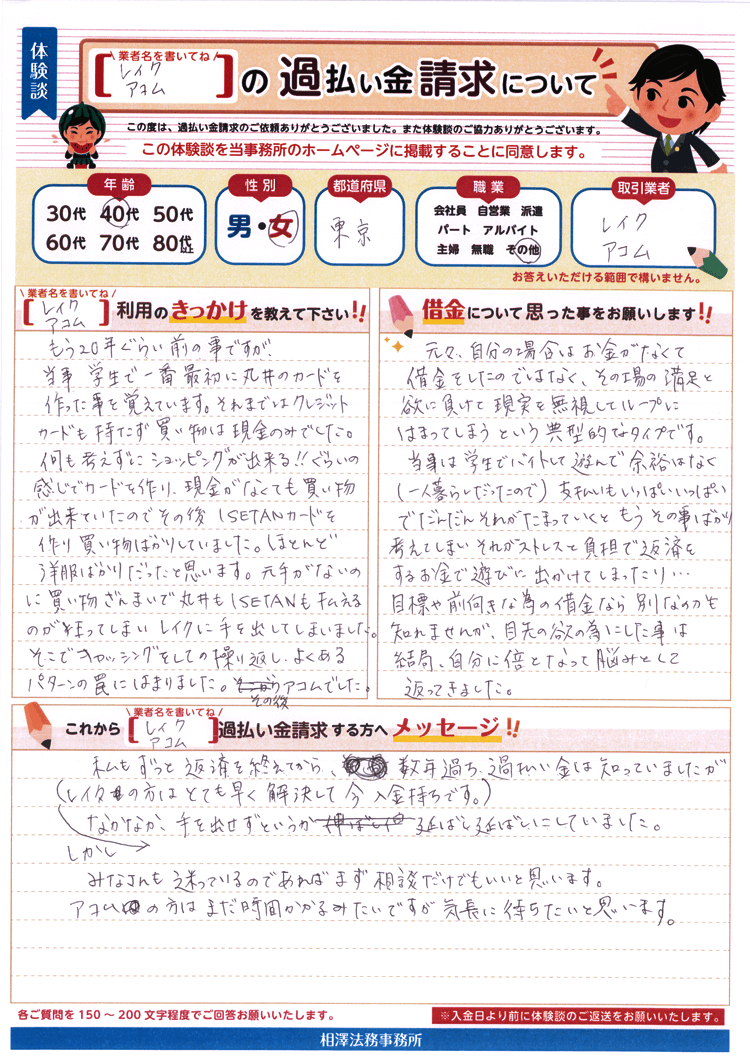 体験談
\ 業者名を書いてね /
[ レイク
アコム ] の 過払い金請求について
この度は、過払い金請求のご依頼ありがとうございました。また体験談のご協力ありがとうございます。
この体験談を当事務所のホームページに掲載することに同意します。
年齢
30代 40代 50代
60代 70代 80代以上
性別
男・女
都道府県
東京
職業
会社員 自営業 派遣
パート アルバイト
主婦 無職 その他
取引業者
レイク
アコム
お答えいただける範囲で構いません。
\ 業者名を書いてね /
[ レイク
アコム ] 利用のきっかけを教えて下さい!!
もう20年ぐらい前の事ですが、
当事 学生で一番最初に丸井のカードを
作った事を覚えています。それまではクレジット
カードも持たず買い物は現金のみでした。
何も考えずにショッピングが出来る!!ぐらいの
感じでカードを作り、現金がなくても買い物
が出来ていたのでその後ISETANカードを
作り買い物ばかりしていました。ほとんど
洋服ばかりだったと思います。元手がないの
に買い物ざんまいで丸井もISETANも払える
のが狂ってしまいレイクに手を出してしまいました。
そこでキャッシングをしての繰り返し、よくある
パターンの罠にはまりました。その後アコムでした。
借金について思った事をお願いします!!
元々、自分の場合はお金がなくて
借金をしたのではなく、その場の満足と
欲に負けて現実を無視してループに
はまってしまうという典型的なタイプです。
当事は学生でバイトして遊んで余裕はなく
(一人暮らしだったので)支払いもいっぱいいっぱい
でだんだんそれがたまっていくともうその事ばかり
考えてしまいそれがストレスと負担で返済を
するお金で遊びに出かけてしまったり…
目標や前向きな為の借金なら別なのかも
知れませんが、目先の欲の為にした事は
結局、自分に倍となって脳みとして
返ってきました。
これから
\ 業者名を書いてね /
[ レイク
アコム ] 過払い金請求する方へメッセージ!!
私もずっと返済を終えてから、数年過ち、過払い金は知っていましたが
(レイクの方はとても早く解決して今入金待ちです。)
なかなか、手を出せずというか延ばし延ばしにしていました。
しかし
みなさんも迷っているのであればまず相談だけでもいいと思います。
アコムの方はまだ時間かかるみたいですが気長に待ちたいと思います。
各ご質問を150～200文字程度でご回答お願いいたします。
※入金日より前に体験談のご返送をお願いいたします。
相澤法務事務所